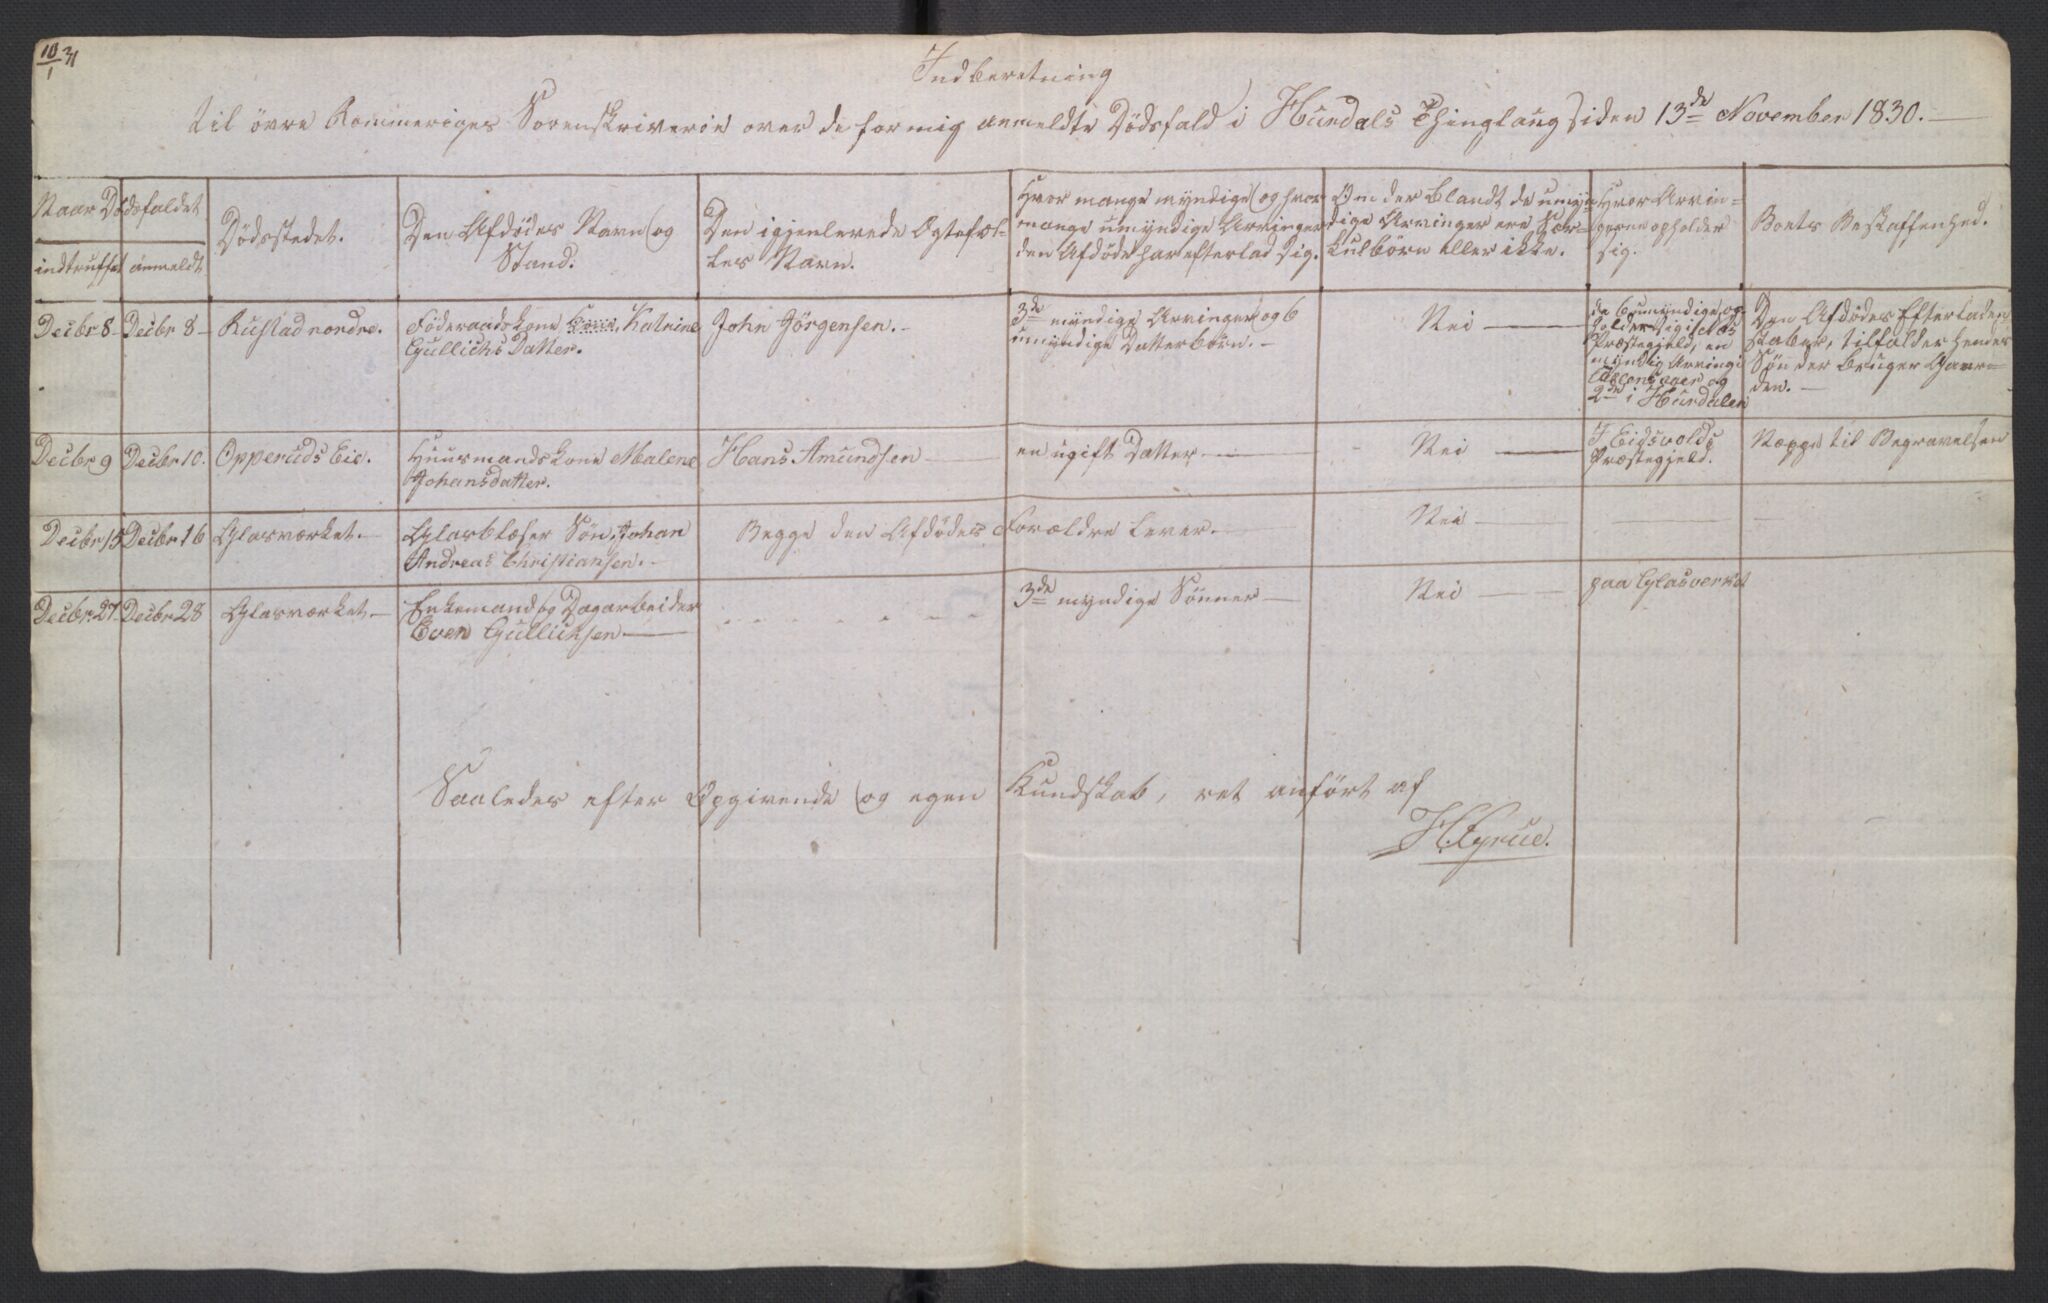 10/1 31
Indberetning
til övre Rommeriges Sorenskriverie over de for mig anmeldte Dödsfald i Hurdals Thinglaug siden 13de November 1830.
Naar Dödsfaldet
indtruffet
anmeldt
Dödsstedet.
Den Afdödes Navn og
Stand.
Den igjenlevede Ægtefæl-
les Navn.
Hvor mange myndige og hvor
mange umyndige Arvinger
den Afdöde har efterlad sig.
Om der blandt de umyn
dige Arvinger ere Sær-
kulbörn eller ikke.
Hvor Arvin=
gerne opholder
sig.
Boets Beskaffenhed.
Decbr 8
Decbr 8
Rustad nordre.
Föderaadskone Katrine
Gullichs Datter.
John Jörgensen.
3de myndige Arvinger og 6
umyndige Datterbörn.
Nei
de 6 umyndige op
holder sig i
Præstegjeld, en
myndig Arving i
Ullensager og
2de i Hurdalen
Den Afdödes Efterladen
skaber, tilfalder hendes
Sön der bruger Gaar=
den.
Decbr 9
Decbr 10.
Opperuds Eie.
Huusmandskone Malene
Johansdatter.
Hans Amundsen
en ugift Datter
Nei
I Eidsvolds
Præstegjeld.
Næppe til Begravelsen
Decbr 15
Decbr 16
Glasværket.
Glasblæser Sön, Johan
Andreas Christiansen.
Begge den Afdödes Forældre lever.
Nei
Decbr. 27
Decbr 28
Glasværket
Enkemand og Dagarbeider
Even Gullichsen
3de myndige Sönner
Nei
paa Glasverket
Saaledes efter Opgivende og egen Kundskab, ret anfört af
H. Fyrue.